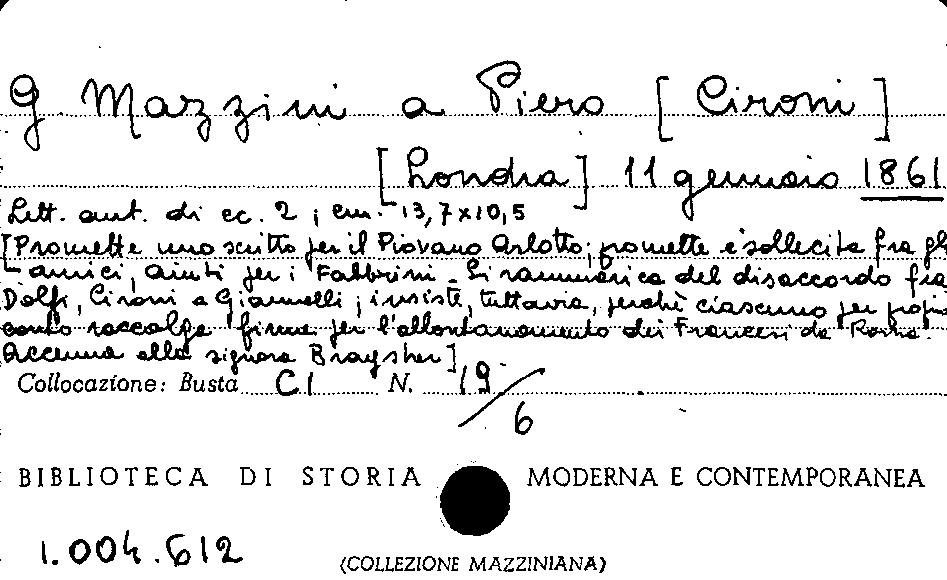 G. Mazzini a Piero [Cironi]
[Londra] 11 gennaio 1861
Lett. aut. di cc. 2 ; cm. 13,7x10,5
[Promette uno scritto per il Piovano Arlotto; promette e sollecita fra gli
amici, aiuti per i Fabbrini. Si rammarica del disaccordo fra
Dolfi, Cironi e Giannelli; insiste, tuttavia, perchè ciascuno per proprio
conto raccolga firme per l'allontanamento dei Francesi da Roma.
Accenna alla signora Braysher]
Collocazione: Busta CI N. 19/6
BIBLIOTECA DI STORIA MODERNA E CONTEMPORANEA
1.004.612
(COLLEZIONE MAZZINIANA)